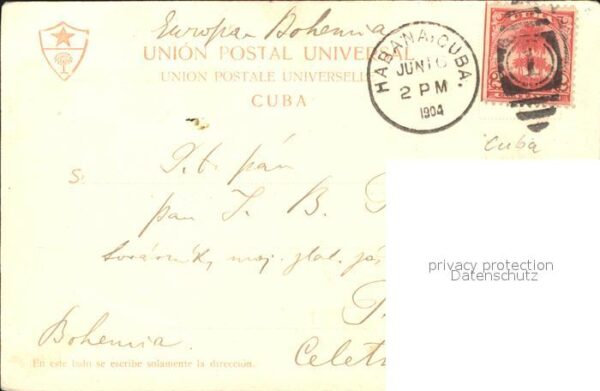 Europa Bohemia
UNIÓN POSTAL UNIVERSAL
UNION POSTALE UNIVERSELLE
CUBA
HABANA, CUBA.
JUN 10
2 PM
1904
CUBA
Cuba
T. b. pán
S.
pan J. B.
továrník, maj. zlat.
privacy protection
Datenschutz
Bohemia.
En este lado se escribe solamente la dirección.